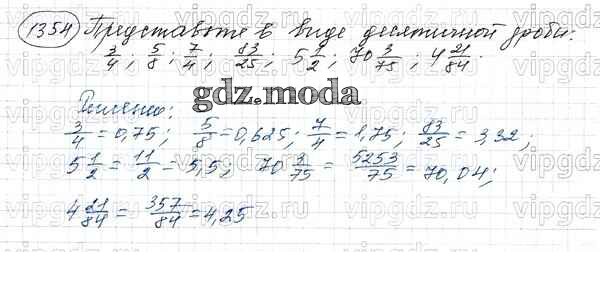 1354 Представьте в виде десятичной дроби:
3/4; 5/8; 7/4; 83/25; 5 1/2; 70 3/75; 4 21/84.
gdz.moda
Решение:
3/4 = 0,75; 5/8 = 0,625; 7/4 = 1,75; 83/25 = 3,32;
5 1/2 = 11/2 = 5,5; 70 3/75 = 5253/75 = 70,04;
4 21/84 = 357/84 = 4,25
vipgdz.ru